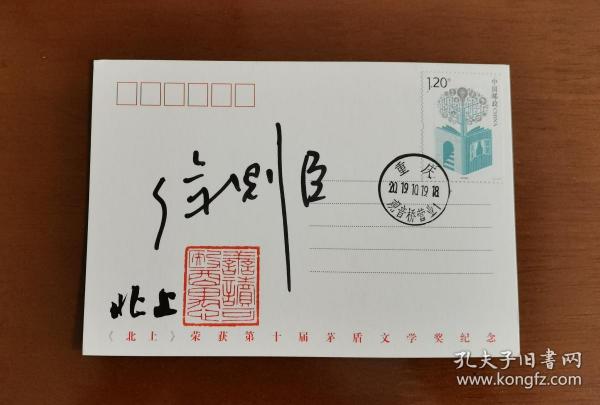 1.20元
中国邮政
CHINA
重庆
2019 10 19 18
观音桥营
徐则臣
北上
《北上》荣获第十届茅盾文学奖纪念
孔夫子旧书网
www.kongfz.com